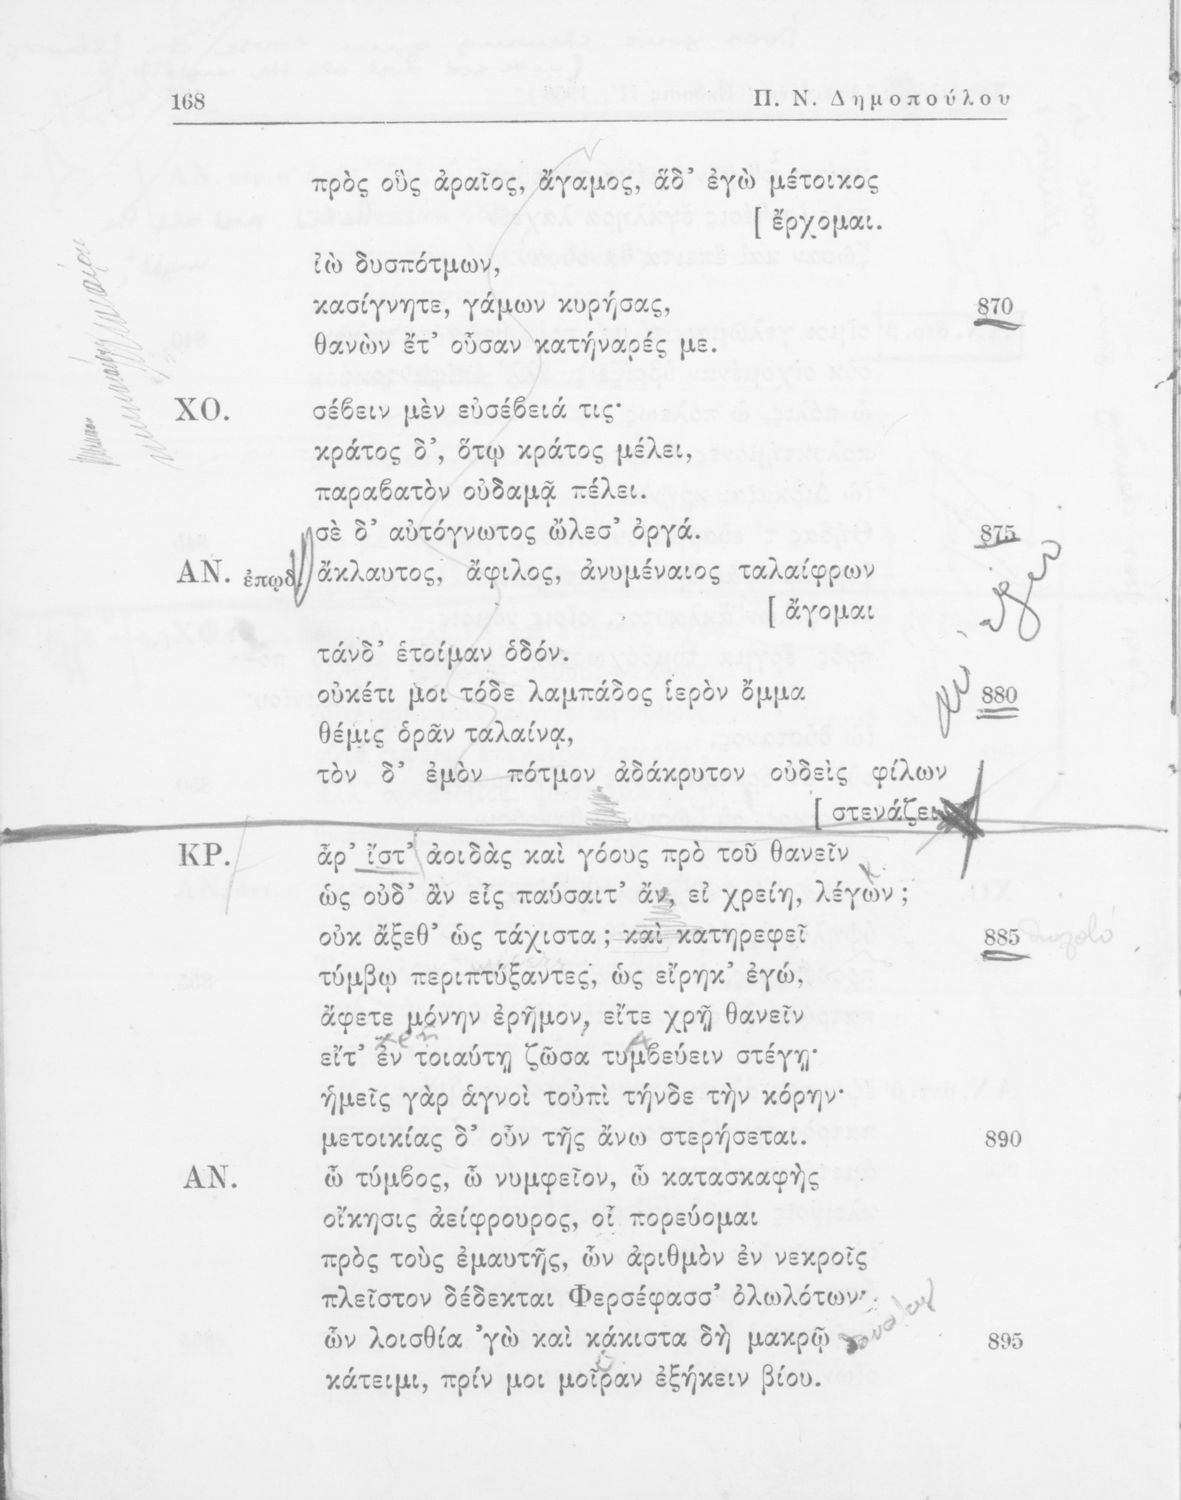 168
Π. Ν. Δημοπούλου
πρὸς οὓς ἀραῖος, ἄγαμος, ἅδ' ἐγὼ μέτοικος
[ ἔρχομαι.
ἰὼ δυσπότμων,
κασίγνητε, γάμων κυρήσας, 870
θανὼν ἔτ' οὖσαν κατήναρές με.
ΧΟ. σέβειν μὲν εὐσέβειά τις·
κράτος δ', ὅτῳ κράτος μέλει,
παραβατὸν οὐδαμᾷ πέλει.
σὲ δ' αὐτόγνωτος ὤλεσ' ὀργά. 875
ΑΝ. ἐπῳδ. ἄκλαυτος, ἄφιλος, ἀνυμέναιος ταλαίφρων
[ ἄγομαι
τάνδ' ἑτοίμαν ὁδόν.
οὐκέτι μοι τόδε λαμπάδος ἱερὸν ὄμμα 880
θέμις ὁρᾶν ταλαίνᾳ,
τὸν δ' ἐμὸν πότμον ἀδάκρυτον οὐδεὶς φίλων
[ στενάζει.
ΚΡ. ἆρ' ἴστ' ἀοιδὰς καὶ γόους πρὸ τοῦ θανεῖν
ὡς οὐδ' ἂν εἷς παύσαιτ' ἄν, εἰ χρείη, λέγων ;
οὐκ ἄξεθ' ὡς τάχιστα ; καὶ κατηρεφεῖ 885
τύμβῳ περιπτύξαντες, ὡς εἴρηκ' ἐγώ,
ἄφετε μόνην ἐρῆμον, εἴτε χρῇ θανεῖν
εἴτ' ἐν τοιαύτῃ ζῶσα τυμβεύειν στέγῃ·
ἡμεῖς γὰρ ἁγνοὶ τοὐπὶ τήνδε τὴν κόρην·
μετοικίας δ' οὖν τῆς ἄνω στερήσεται. 890
ΑΝ. ὦ τύμβος, ὦ νυμφεῖον, ὦ κατασκαφὴς
οἴκησις ἀείφρουρος, οἷ πορεύομαι
πρὸς τοὺς ἐμαυτῆς, ὧν ἀριθμὸν ἐν νεκροῖς
πλεῖστον δέδεκται Φερσέφασσ' ὀλωλότων·
ὧν λοισθία 'γὼ καὶ κάκιστα δὴ μακρῷ 895
κάτειμι, πρίν μοι μοῖραν ἐξήκειν βίου.